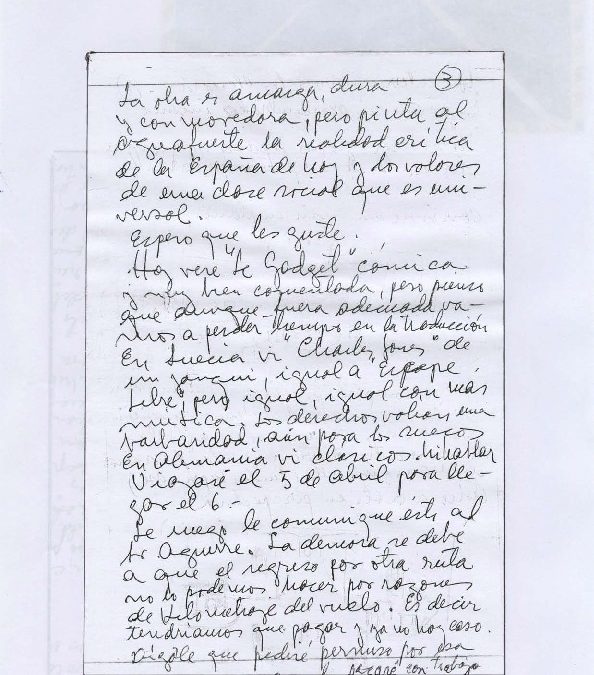 3
La obra es amarga, dura
y conmovedora, pero pinta al
aguafuerte la realidad crítica
de la España de hoy y los valores
de una clase social que es uni-
versal.
Espero que les guste.
Hoy veré "Le Gadget" cómica
y muy bien comentada, pero pienso
que aunque fuera adecuada va-
mos a perder tiempo en la traducción
En Suecia vi "Charley, Jones" de
un yanqui, igual a Escape
Libre, pero igual, igual con más
música. Los derechos valían una
barbaridad, aún para los suecos
En Alemania vi clásicos. Ni hablar
Viajaré el 5 de abril para lle-
gar el 6.-
Le ruego le comunique ésto al
Sr Aguirre. La demora se debe
a que el regreso por otra ruta
no lo podemos hacer por razones
de kilometraje del vuelo. Es decir
tendríamos que pagar y ya no hay caso.
Dígale que pediré permiso por esa
pagaré con trabajo